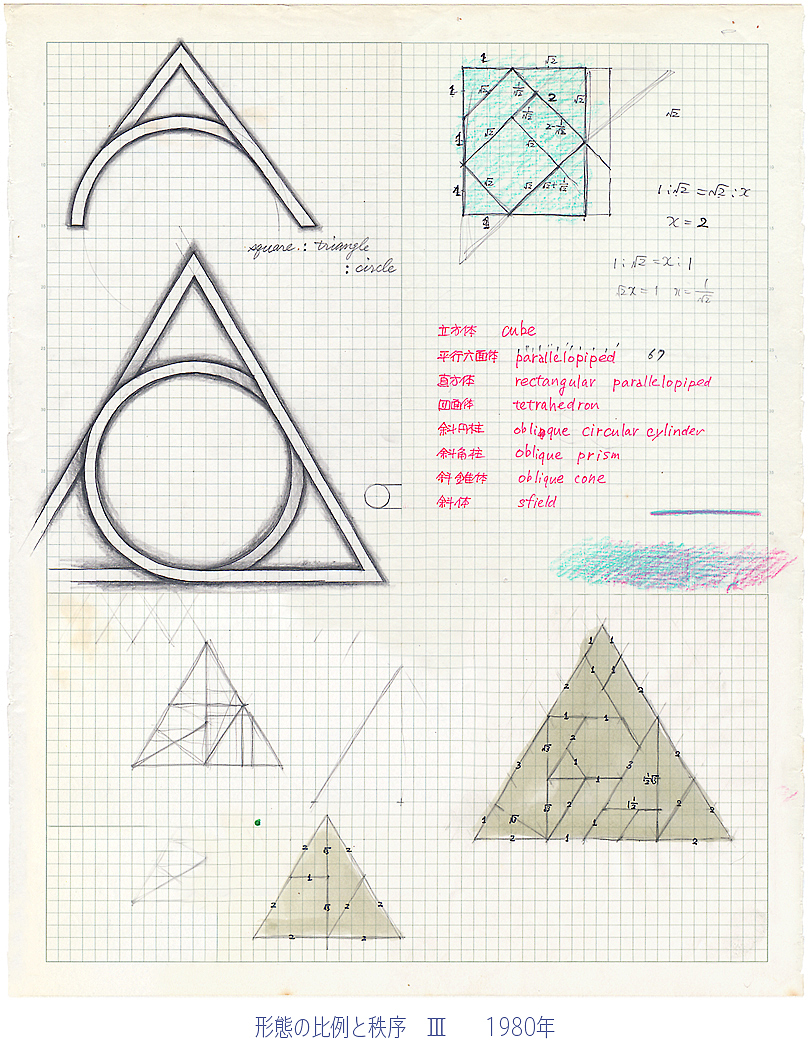 1 √2
1 √2 1/√2 2 √2
1/√2
1 √2 √2 2-1/√2
1 √2 √2 √2+1/√2
1
√2
1:√2 = √2:x
x = 2
1:√2 = x:1
√2x = 1 x = 1/√2
square : triangle
: circle
立方体 cube
平行六面体 parallelopiped 67
直方体 rectangular parallelopiped
四面体 tetrahedron
斜円柱 oblipque circular cylinder
斜角柱 oblique prism
斜錐体 oblique cone
斜体 sfield
1 1
1 1
2 2
1 1
√3 2 2
3 1 3
1 1½√3
√3 2 1½
1 √3 1 2 2
2 1 2
2 √3 2
1
2 √3 2 2
2 2
形態の比例と秩序 Ⅲ 1980年